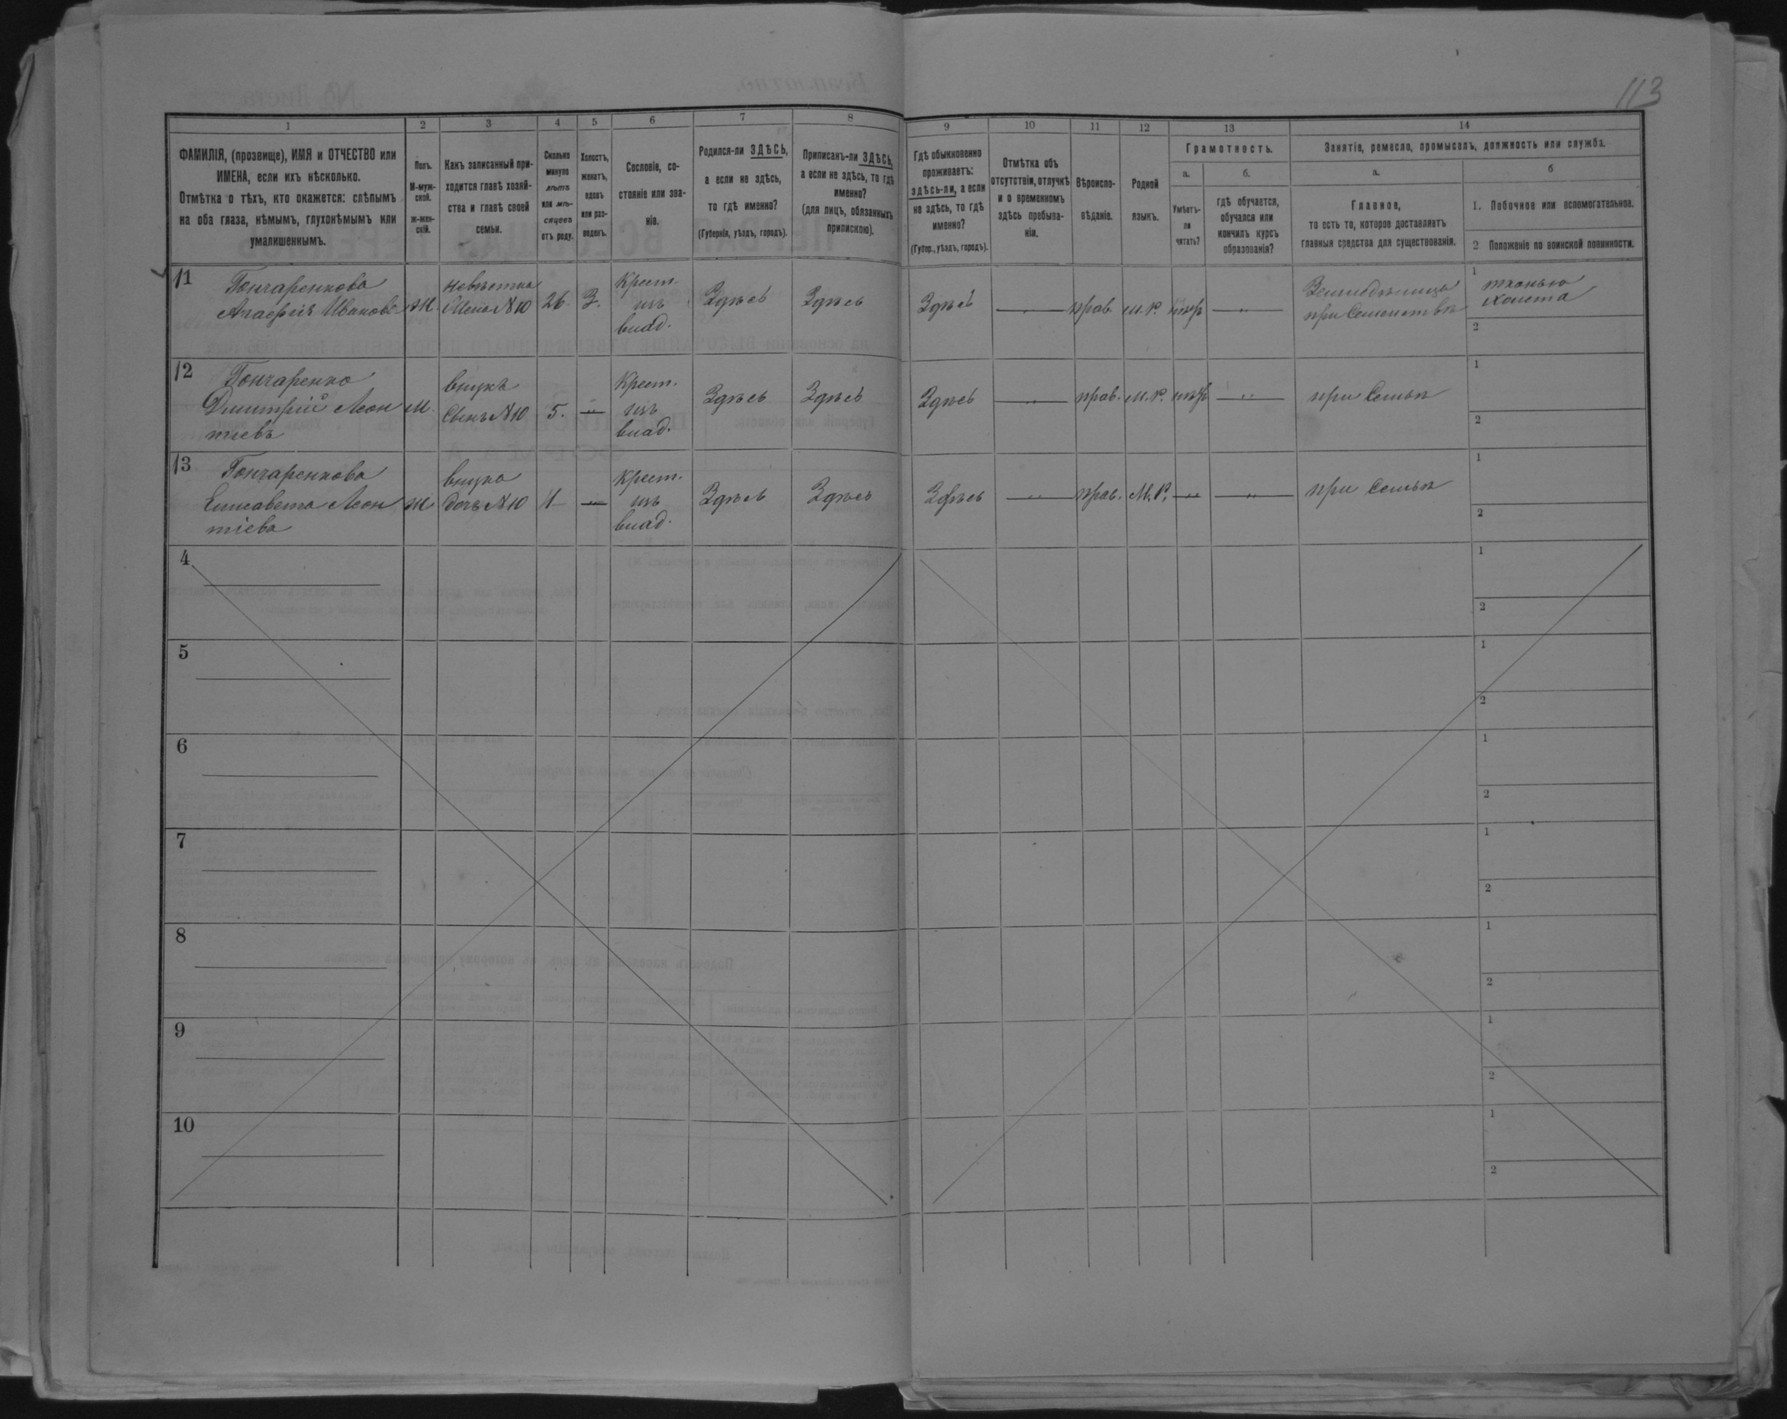 113
1 2 3 4 5 6 7 8 9 10 11 12 13 14
ФАМИЛІЯ, (прозвище), ИМЯ и ОТЧЕСТВО или
ИМЕНА, если ихъ нѣсколько.
Отмѣтка о тѣхъ, кто окажется: слѣпымъ
на оба глаза, нѣмымъ, глухонѣмымъ или
умалишеннымъ.
Полъ.
М-муж-
ской.
Ж-жен-
скій.
Какъ записанный при-
ходится главѣ хозяй-
ства и главѣ своей
семьи.
Сколько
минуло
лѣтъ
или мѣ-
сяцевъ
отъ роду.
Холостъ,
женатъ,
вдовъ
или раз-
веденъ.
Сословіе, со-
стояніе или зва-
ніе.
Родился-ли ЗДѢСЬ,
а если не здѣсь,
то гдѣ именно?
(Губернія, уѣздъ, городъ).
Приписанъ-ли ЗДѢСЬ,
а если не здѣсь, то гдѣ
именно?
(для лицъ, обязанныхъ
припискою).
Гдѣ обыкновенно
проживаетъ:
здѣсь-ли, а если
не здѣсь, то гдѣ
именно?
(Губер., уѣздъ, городъ).
Отмѣтка объ
отсутствіи, отлучкѣ
и о временномъ
здѣсь пребыва-
ніи.
Вѣроиспо-
вѣданіе.
Родной
языкъ.
Грамотность.
а.
Умѣетъ-
ли
читать?
б.
гдѣ обучается,
обучался или
кончилъ курсъ
образованія?
Занятіе, ремесло, промыселъ, должность или служба.
а.
Главное,
то есть то, которое доставляетъ
главныя средства для существованія.
б
1. Побочное или вспомогательное.
2 Положеніе по воинской повинности.
11 Гончаренкова
Агафія Иванова Ж. невѣстка
Жена №10 26. З. Крест.
изъ
влад. Здѣсь Здѣсь Здѣсь прав. М.Р. нѣтъ Земледѣлица
при Семействѣ 1 тканью
холста
2
12 Гончаренко
Дмитрій Леон
тіевъ М. внукъ
Сынъ №10 5. Крест.
изъ
влад. Здѣсь Здѣсь Здѣсь прав. М.Р. нѣтъ при Семьѣ 1
2
13 Гончаренкова
Елисавета Леон
тіева Ж внука
дочь №10 1 Крест.
изъ
влад. Здѣсь Здѣсь Здѣсь прав. М.Р. при Семьѣ 1
2
4 1
2
5 1
2
6 1
2
7 1
2
8 1
2
9 1
2
10 1
2